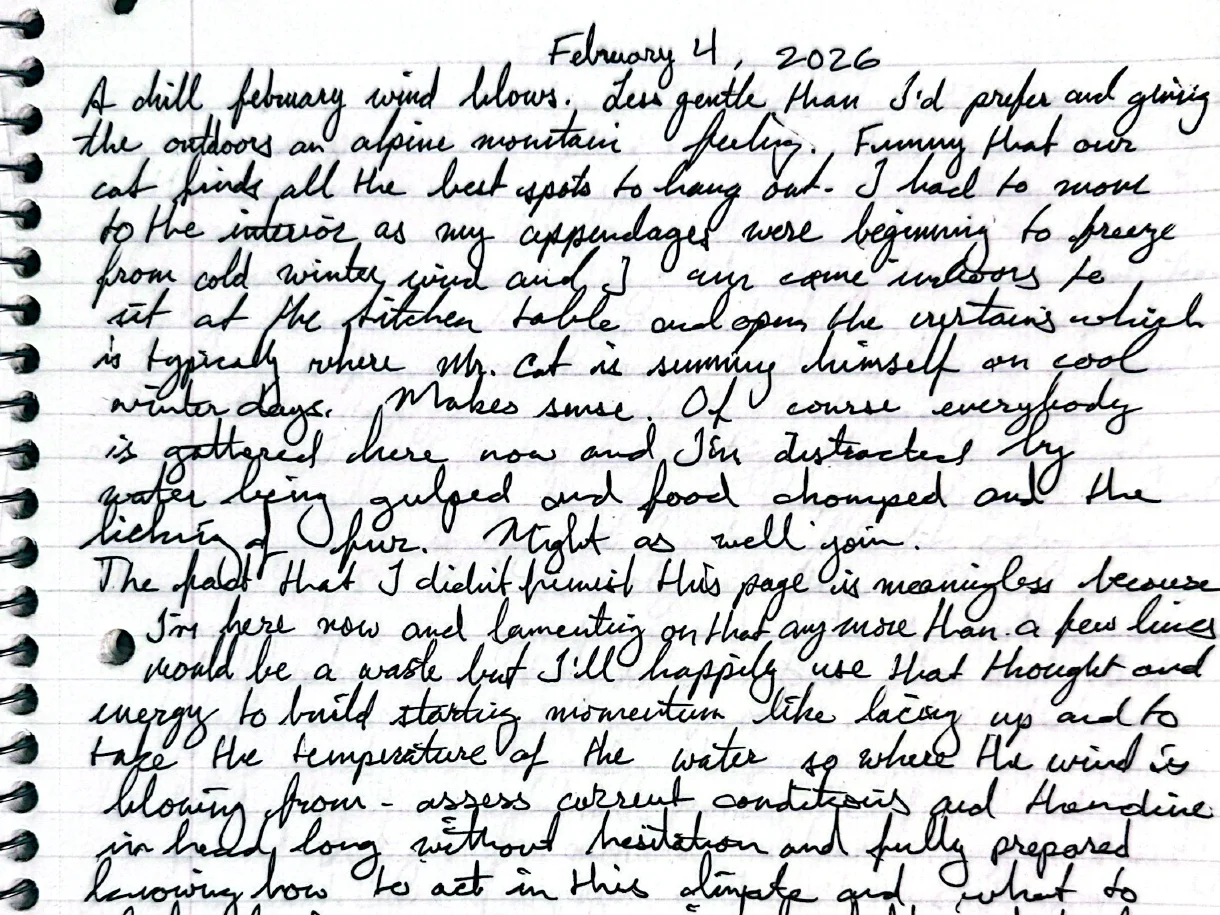 February 4, 2026
A chill february wind blows. Less gentle than I'd prefer and giving
the outdoors an alpine mountain feeling. Funny that our
cat finds all the best spots to hang out. I had to move
to the interior as my appendages were beginning to freeze
from cold winter wind and I come indoors to
sit at the kitchen table and open the curtains which
is typically where Mr. Cat is sunning himself on cool
winter days. Makes sense. Of course everybody
is gathered here now and I'm distracted by
water being gulped and food chomped and the
licking of fur. Might as well join.
The fact that I didn't finish this page is meaningless because
I'm here now and lamenting on that any more than a few lines
would be a waste but I'll happily use that thought and
energy to build starting momentum like lacing up and to
take the temperature of the water so where the wind is
blowing from - assess current conditions and then dive
in head long without hesitation and fully prepared
knowing how to act in this climate and what to